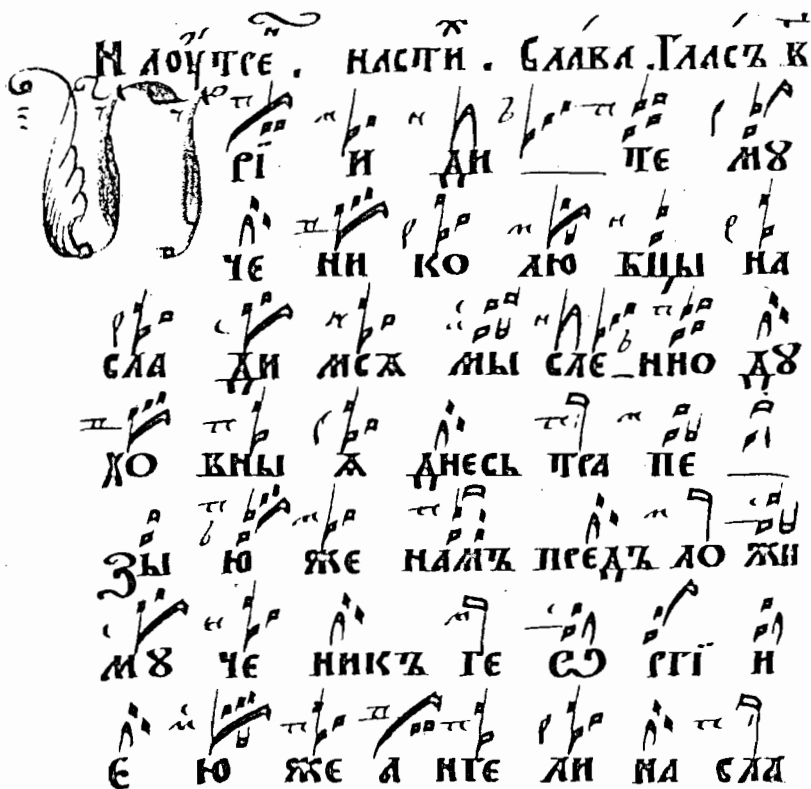 На оу҆трен. на стих. Слава. Гласъ в҃
Прїи ди те мꙋ
че ни ко лю бцы на
сла ди мсѧ мы сле нно дꙋ
хо вны ѧ днесь тра пе
зы ю же намъ предъ ло жи
мꙋ че никъ ге ѡ ргї и
є ю же а нге ли на сла